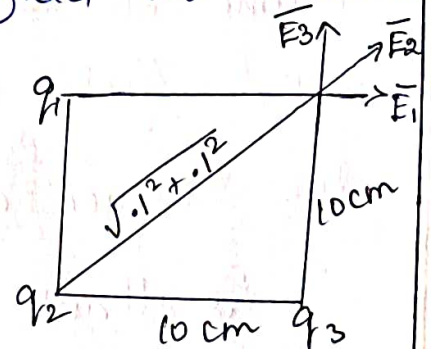 E̅3
E̅2
q1
E̅1
√.1² + .1²
10cm
q2
10 cm
q3